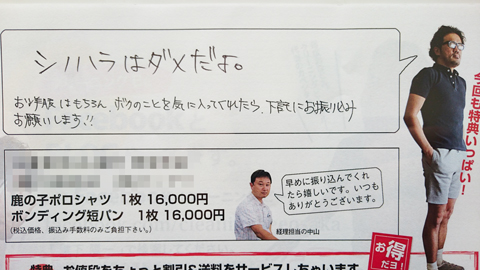 シノハラはダメだよ。
お洋服はもちろん、ボクのことを気に入ってくれたら、下記にお振り込み
お願いします!!
今回も特典いっぱい!
早めに振り込んでくれ
たら嬉しいです。いつも
ありがとうございます。
鹿の子ポロシャツ 1枚 16,000円
ボンディング短パン 1枚 16,000円
(税込価格、振込み手数料のみご負担下さい。)
経理担当の中山
お得
だヨ
特典 お値段をちょっと割引&送料をサービスしちゃいます